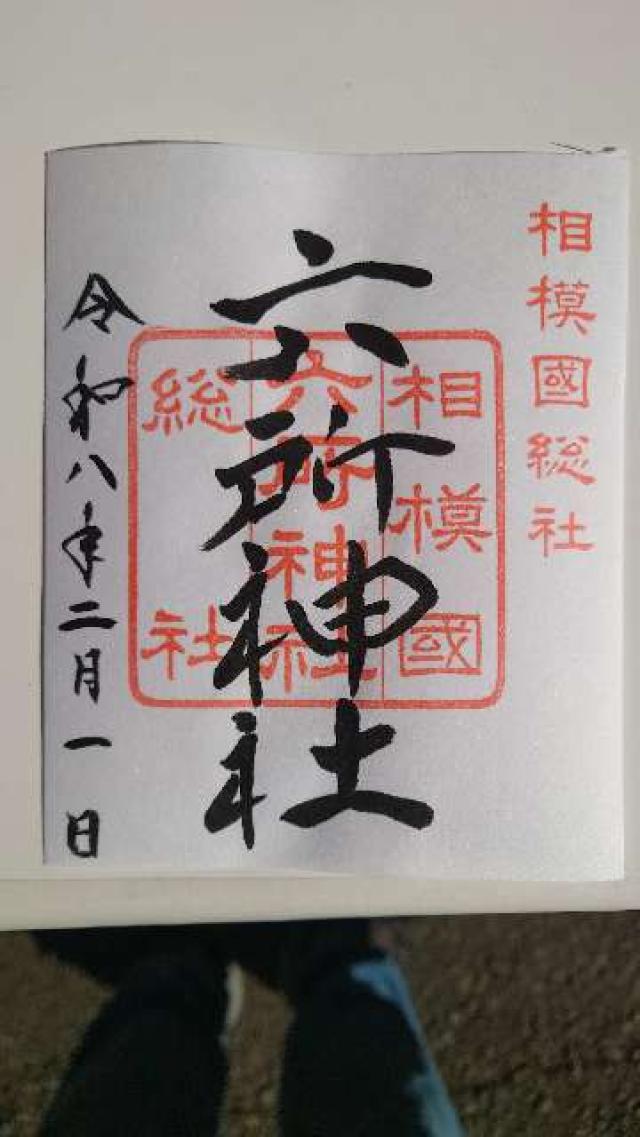 相模國総社
六所神社
相模國
六所神社
総社
令和八年二月一日